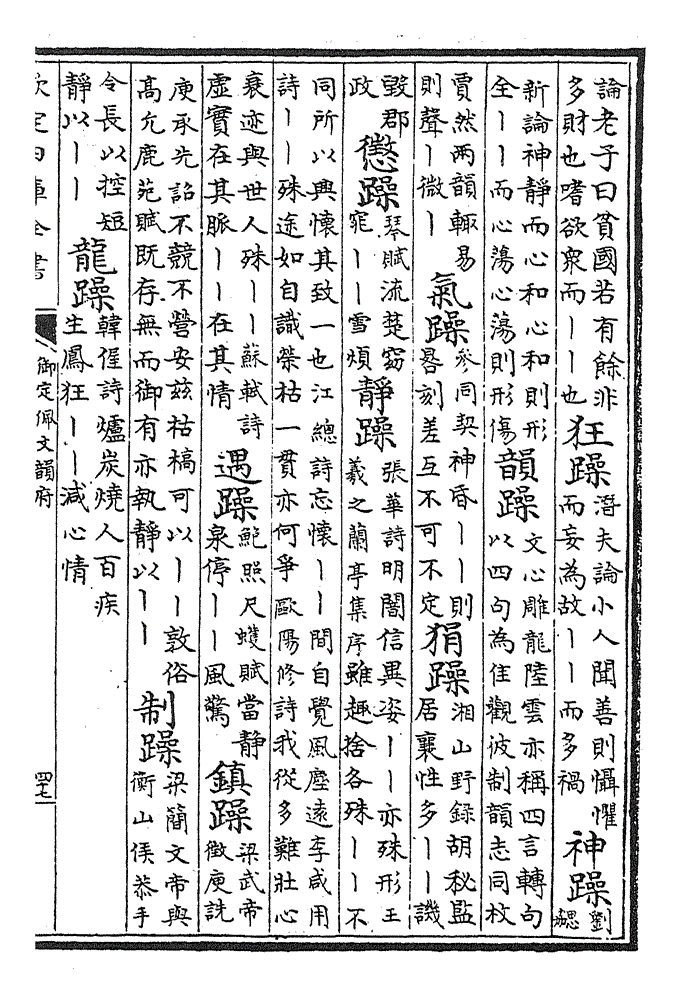 論老子曰貧國若有餘非
多財也嗜欲衆而丨丨也
狂躁
潛夫論小人聞善則懾懼
而妄為故丨丨而多禍
神躁
劉
勰
新論神静而心和心和則形
全丨丨而心蕩心蕩則形傷
韻躁
文心雕龍陸雲亦稱四言轉句
以四句為佳觀彼制韻志同枚
賈然兩韻輒易
則聲丨微丨
氣躁
參同契神昏丨丨則
晷刻差互不可不定
狷躁
湘山野録胡秘監
居襄性多丨丨譏
毁郡
政
懲躁
琴賦流楚窈
窕丨丨雪煩
静躁
張華詩明闇信異姿丨丨亦殊形王
羲之蘭亭集序雖趣捨各殊丨丨不
同所以興懷其致一也江總詩忘懷丨丨間自覺風塵遠李咸用
詩丨丨殊途如自識榮枯一貫亦何爭歐陽修詩我從多難壯心
衰迹與世人殊丨丨蘇軾詩
虛實在其脈丨丨在其情
遇躁
鮑照尺蠖賦當静
泉停丨丨風驚
鎮躁
梁武帝
徵庾詵
庾承先詔不競不營安兹枯槁可以丨丨敦俗
高允鹿苑賦既存無而御有亦執静以丨丨
制躁
梁簡文帝與
衡山侯恭手
令長以控短
静以丨丨
龍躁
韓偓詩爐炭燒人百疾
生鳳狂丨丨減心情
欽定四庫全書
御定佩文韻府
四十七